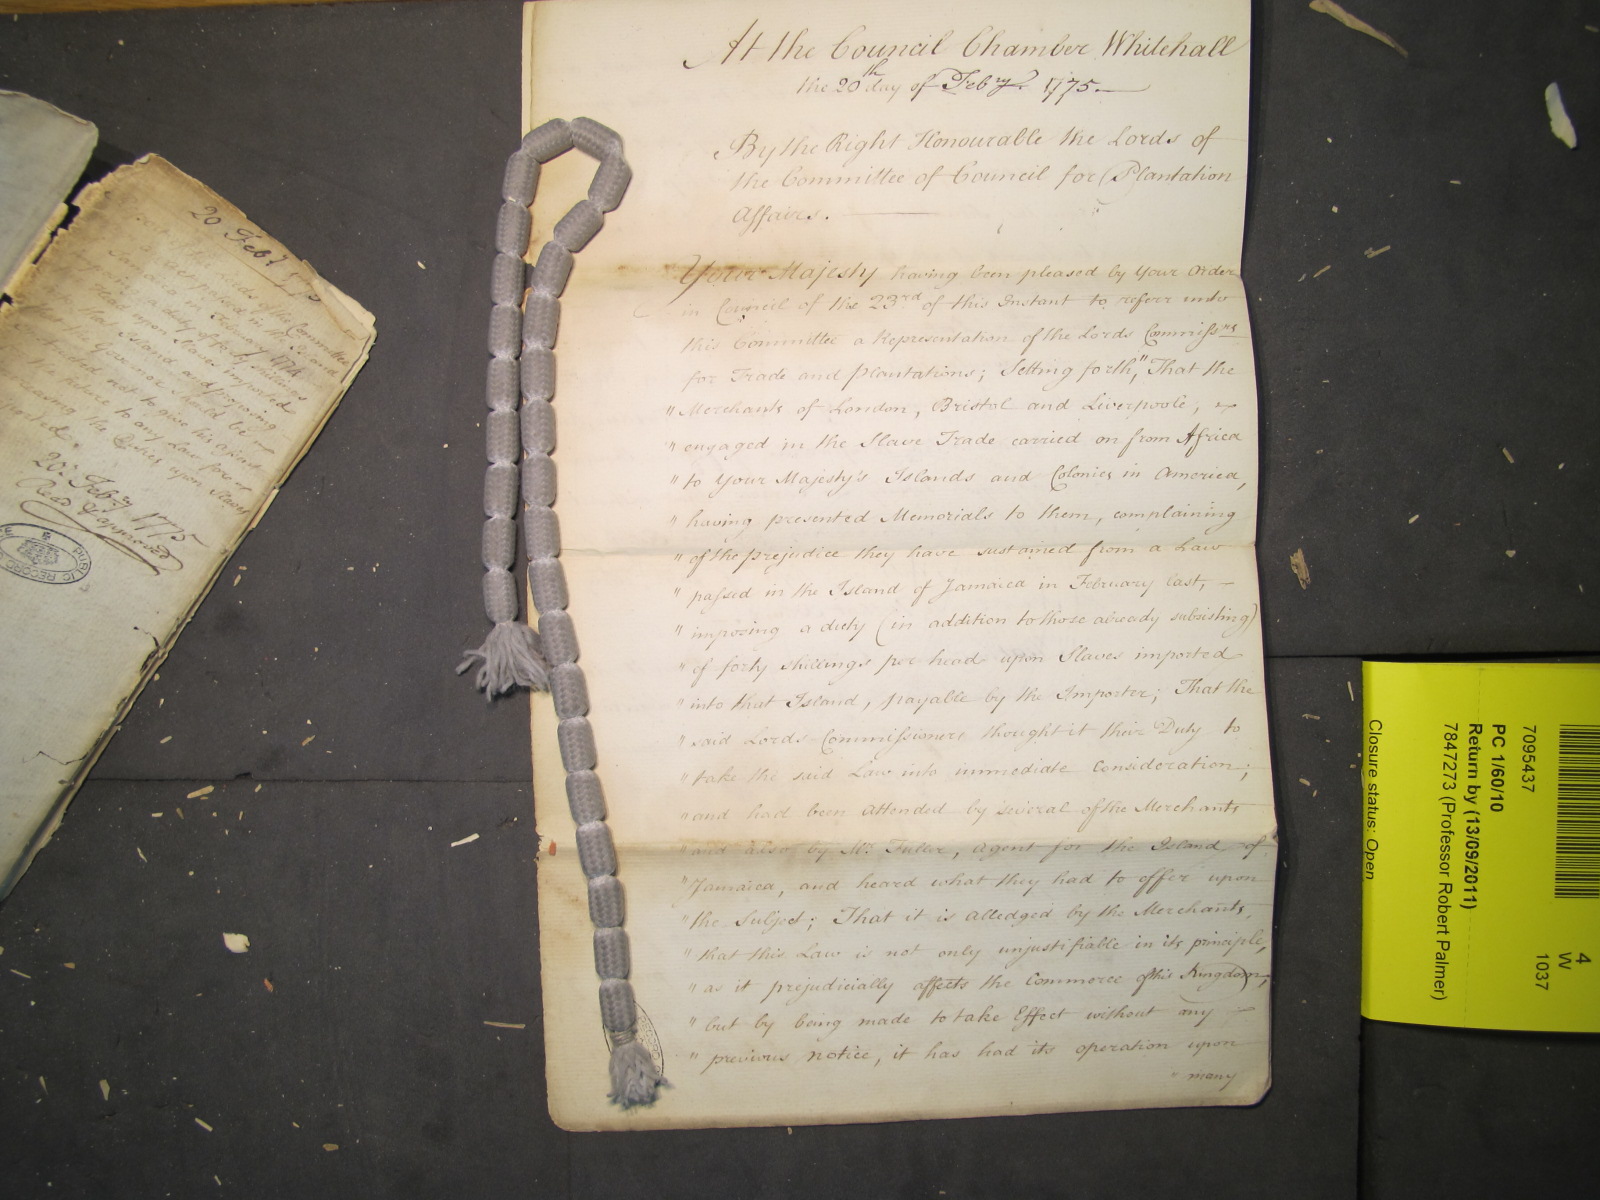 At the Council Chamber Whitehall
the 20th day of Febry. 1775.
By the Right Honourable the Lords of
the Committee of Council for Plantation
Affairs.
Your Majesty having been pleased by Your Order
in Council of the 23rd of this Instant to referr unto
this Committee a Representation of the Lords Commissrs
for Trade and Plantations; Setting forth, "That the
"Merchants of London, Bristol and Liverpoole,
"engaged in the Slave Trade carried on from Africa
"to Your Majesty's Islands and Colonies in America,
"having presented Memorials to them, complaining
"of the prejudice they have sustained from a Law
"passed in the Island of Jamaica in February last,
"imposing a duty (in addition to those already subsisting)
"of forty shillings per head upon Slaves imported
"into that Island, payable by the Importer; That the
"said Lords Commissioners thought it their Duty to
"take the said Law into immediate Consideration;
"and had been attended by several of the Merchants
"and also by Mr. Fuller, Agent for the Island of
"Jamaica, and heard what they had to offer upon
"the Subject; That it is alledged by the Merchants,
"that this Law is not only unjustifiable in its principle,
"as it prejudicially affects the Commerce of this Kingdom;
"but by being made to take Effect without any
"previous notice, it has had its operation upon
"many
20 Feby 1775
Lords of the Committee
duty of forty shillings
upon Slaves imported
Island and proposing
the Governor should be
not to give his assent
future to any Law for
the Duties upon Slaves
20: Febry 1775
Read & approved
PUBLIC RECORD
7095437
PC 1/60/10
Return by (13/09/2011)
7847273 (Professor Robert Palmer)
Closure status: Open
4
W
1037